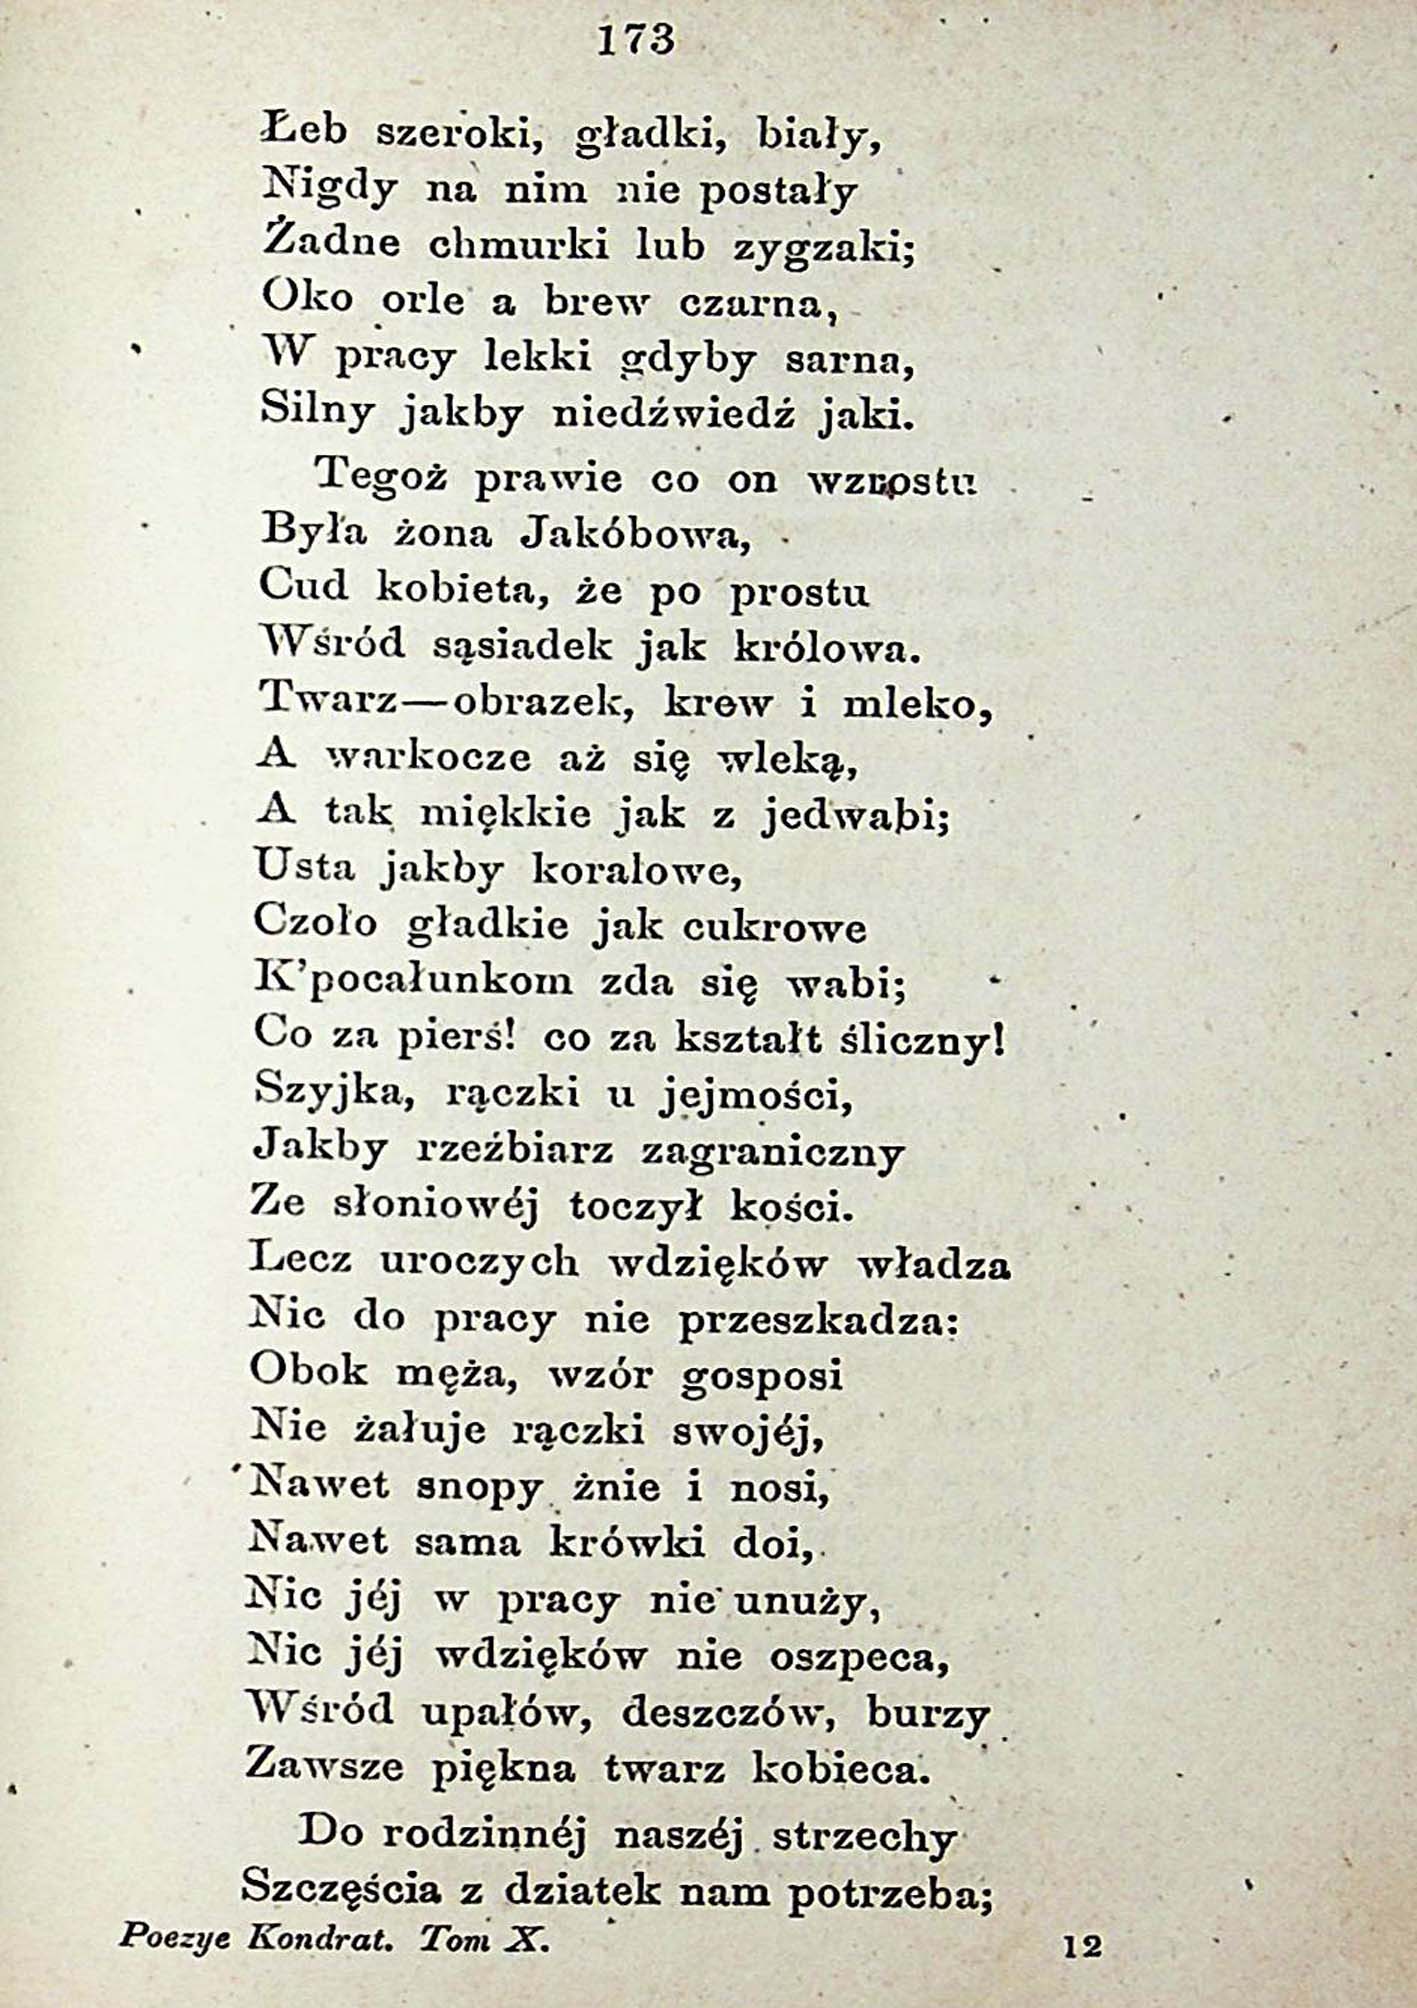 173
Łeb szeroki, gładki, biały,
Nigdy na nim nie postały
Żadne chmurki lub zygzaki;
Oko orle a brew czarna,
W pracy lekki gdyby sarna,
Silny jakby niedźwiedź jaki.
Tegoż prawie co on wzrostu
Była żona Jakóbowa,
Cud kobieta, że po prostu
Wśród sąsiadek jak królowa.
Twarz—obrazek, krew i mleko,
A warkocze aż się wleką,
A tak miękkie jak z jedwabi;
Usta jakby koralowe,
Czoło gładkie jak cukrowe
K'pocałunkom zda się wabi;
Co za pierś! co za kształt śliczny!
Szyjka, rączki u jejmości,
Jakby rzeźbiarz zagraniczny
Ze słoniowéj toczył kości.
Lecz uroczych wdzięków władza
Nic do pracy nie przeszkadza:
Obok męża, wzór gosposi
Nie żałuje rączki swojéj,
Nawet snopy żnie i nosi,
Nawet sama krówki doi,
Nic jéj w pracy nie unuży,
Nic jéj wdzięków nie oszpeca,
Wśród upałów, deszczów, burzy
Zawsze piękna twarz kobieca.
Do rodzinnéj naszéj strzechy
Szczęścia z dziatek nam potrzeba;
Poezye Kondrat. Tom X. 12